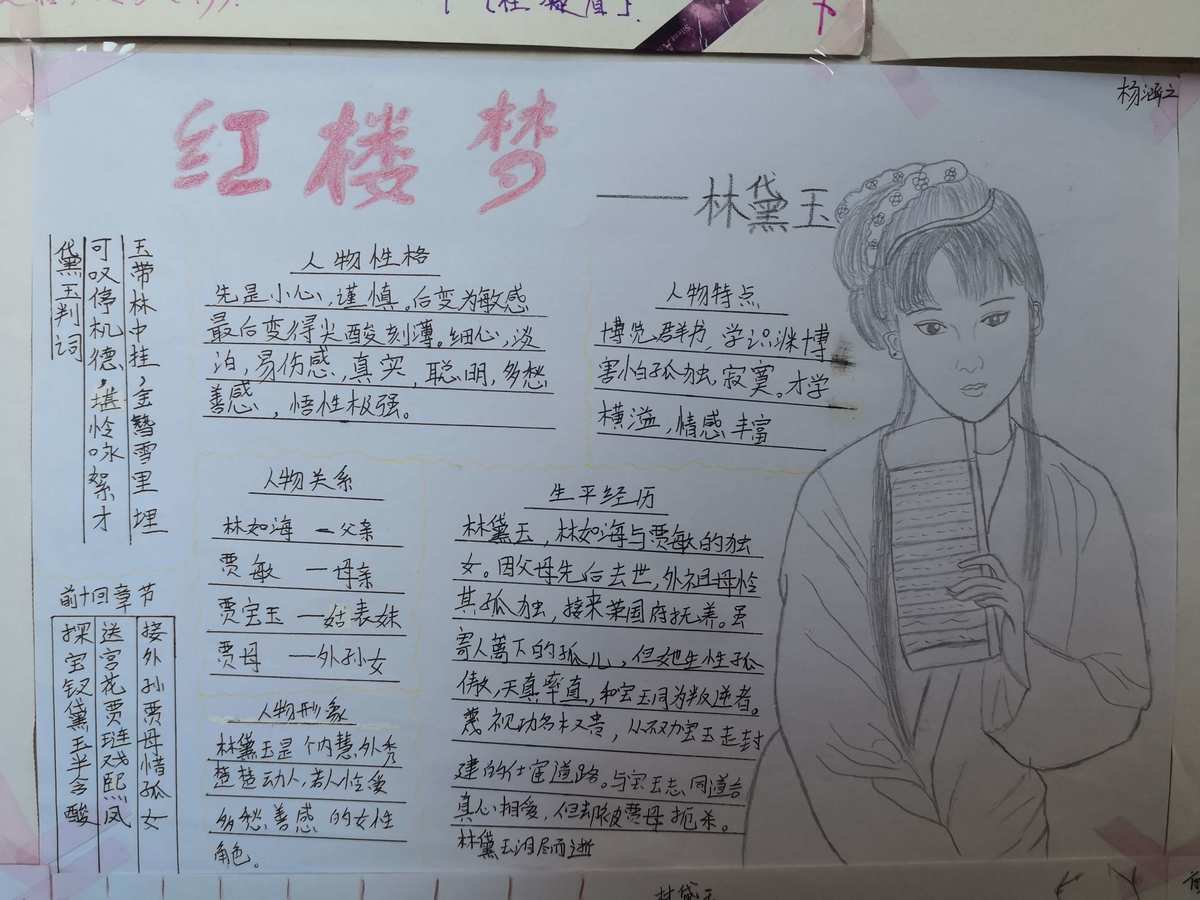 杨涵之
红楼梦
——林黛玉
黛玉判词
可叹停机德,堪怜咏絮才
玉带林中挂,金簪雪里埋
人物性格
先是小心,谨慎。后变为敏感
最后变得尖酸刻薄。细心,淡
泊,易伤感,真实,聪明,多愁
善感,悟性极强。
人物特点
博览群书,学识渊博
害怕孤独,寂寞。才学
横溢,情感丰富
人物关系
林如海 — 父亲
贾敏 — 母亲
贾宝玉 — 姑表妹
贾母 — 外孙女
生平经历
林黛玉,林如海与贾敏的独
女。因父母先后去世,外祖母怜
其孤独,接来荣国府抚养。虽
寄人篱下的孤儿,但她生性孤
傲,天真率直,和宝玉同为叛逆者。
蔑视功名权贵,从不劝宝玉走封
建的仕宦道路。与宝玉志同道合
真心相爱,但却被贾母扼杀。
林黛玉泪尽而逝
人物形象
林黛玉是个内慧外秀
楚楚动人,惹人怜爱
多愁善感的女性
角色。
前十回章节
接外孙贾母惜孤女
送宫花贾琏戏熙凤
探宝钗黛玉半含酸
林黛玉